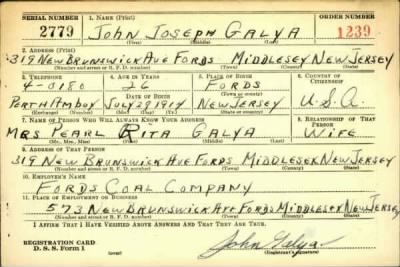 SERIAL NUMBER 1. NAME (Print) ORDER NUMBER
2779 JOHN JOSEPH GALYA 1239
(First) (Middle) (Last)
2. ADDRESS (Print)
319 NEW BRUNSWICK AVE FORDS MIDDLESEX NEW JERSEY
(Number and street or R. F. D. number) (Town) (County) (State)
3. TELEPHONE 4. AGE IN YEARS 5. PLACE OF BIRTH 6. COUNTRY OF CITIZENSHIP
4-0180 26 FORDS
DATE OF BIRTH (Town or county)
PERTH AMBOY JULY 29 1914 NEW JERSEY U.S.A.
(Exchange) (Number) (Mo.) (Day) (Yr.) (State or country)
7. NAME OF PERSON WHO WILL ALWAYS KNOW YOUR ADDRESS 8. RELATIONSHIP OF THAT PERSON
MRS PEARL RITA GALYA WIFE
(Mr., Mrs., Miss) (First) (Middle) (Last)
9. ADDRESS OF THAT PERSON
319 NEW BRUNSWICK AVE FORDS MIDDLESEX NEW JERSEY
(Number and street or R. F. D. number) (Town) (County) (State)
10. EMPLOYER'S NAME
FORDS COAL COMPANY
11. PLACE OF EMPLOYMENT OR BUSINESS
573 NEW BRUNSWICK AVE FORDS MIDDLESEX NEW JERSEY
(Number and street or R. F. D. number) (Town) (County) (State)
I AFFIRM THAT I HAVE VERIFIED ABOVE ANSWERS AND THAT THEY ARE TRUE.
REGISTRATION CARD
D. S. S. Form 1 John Galya
(Registrant's signature)